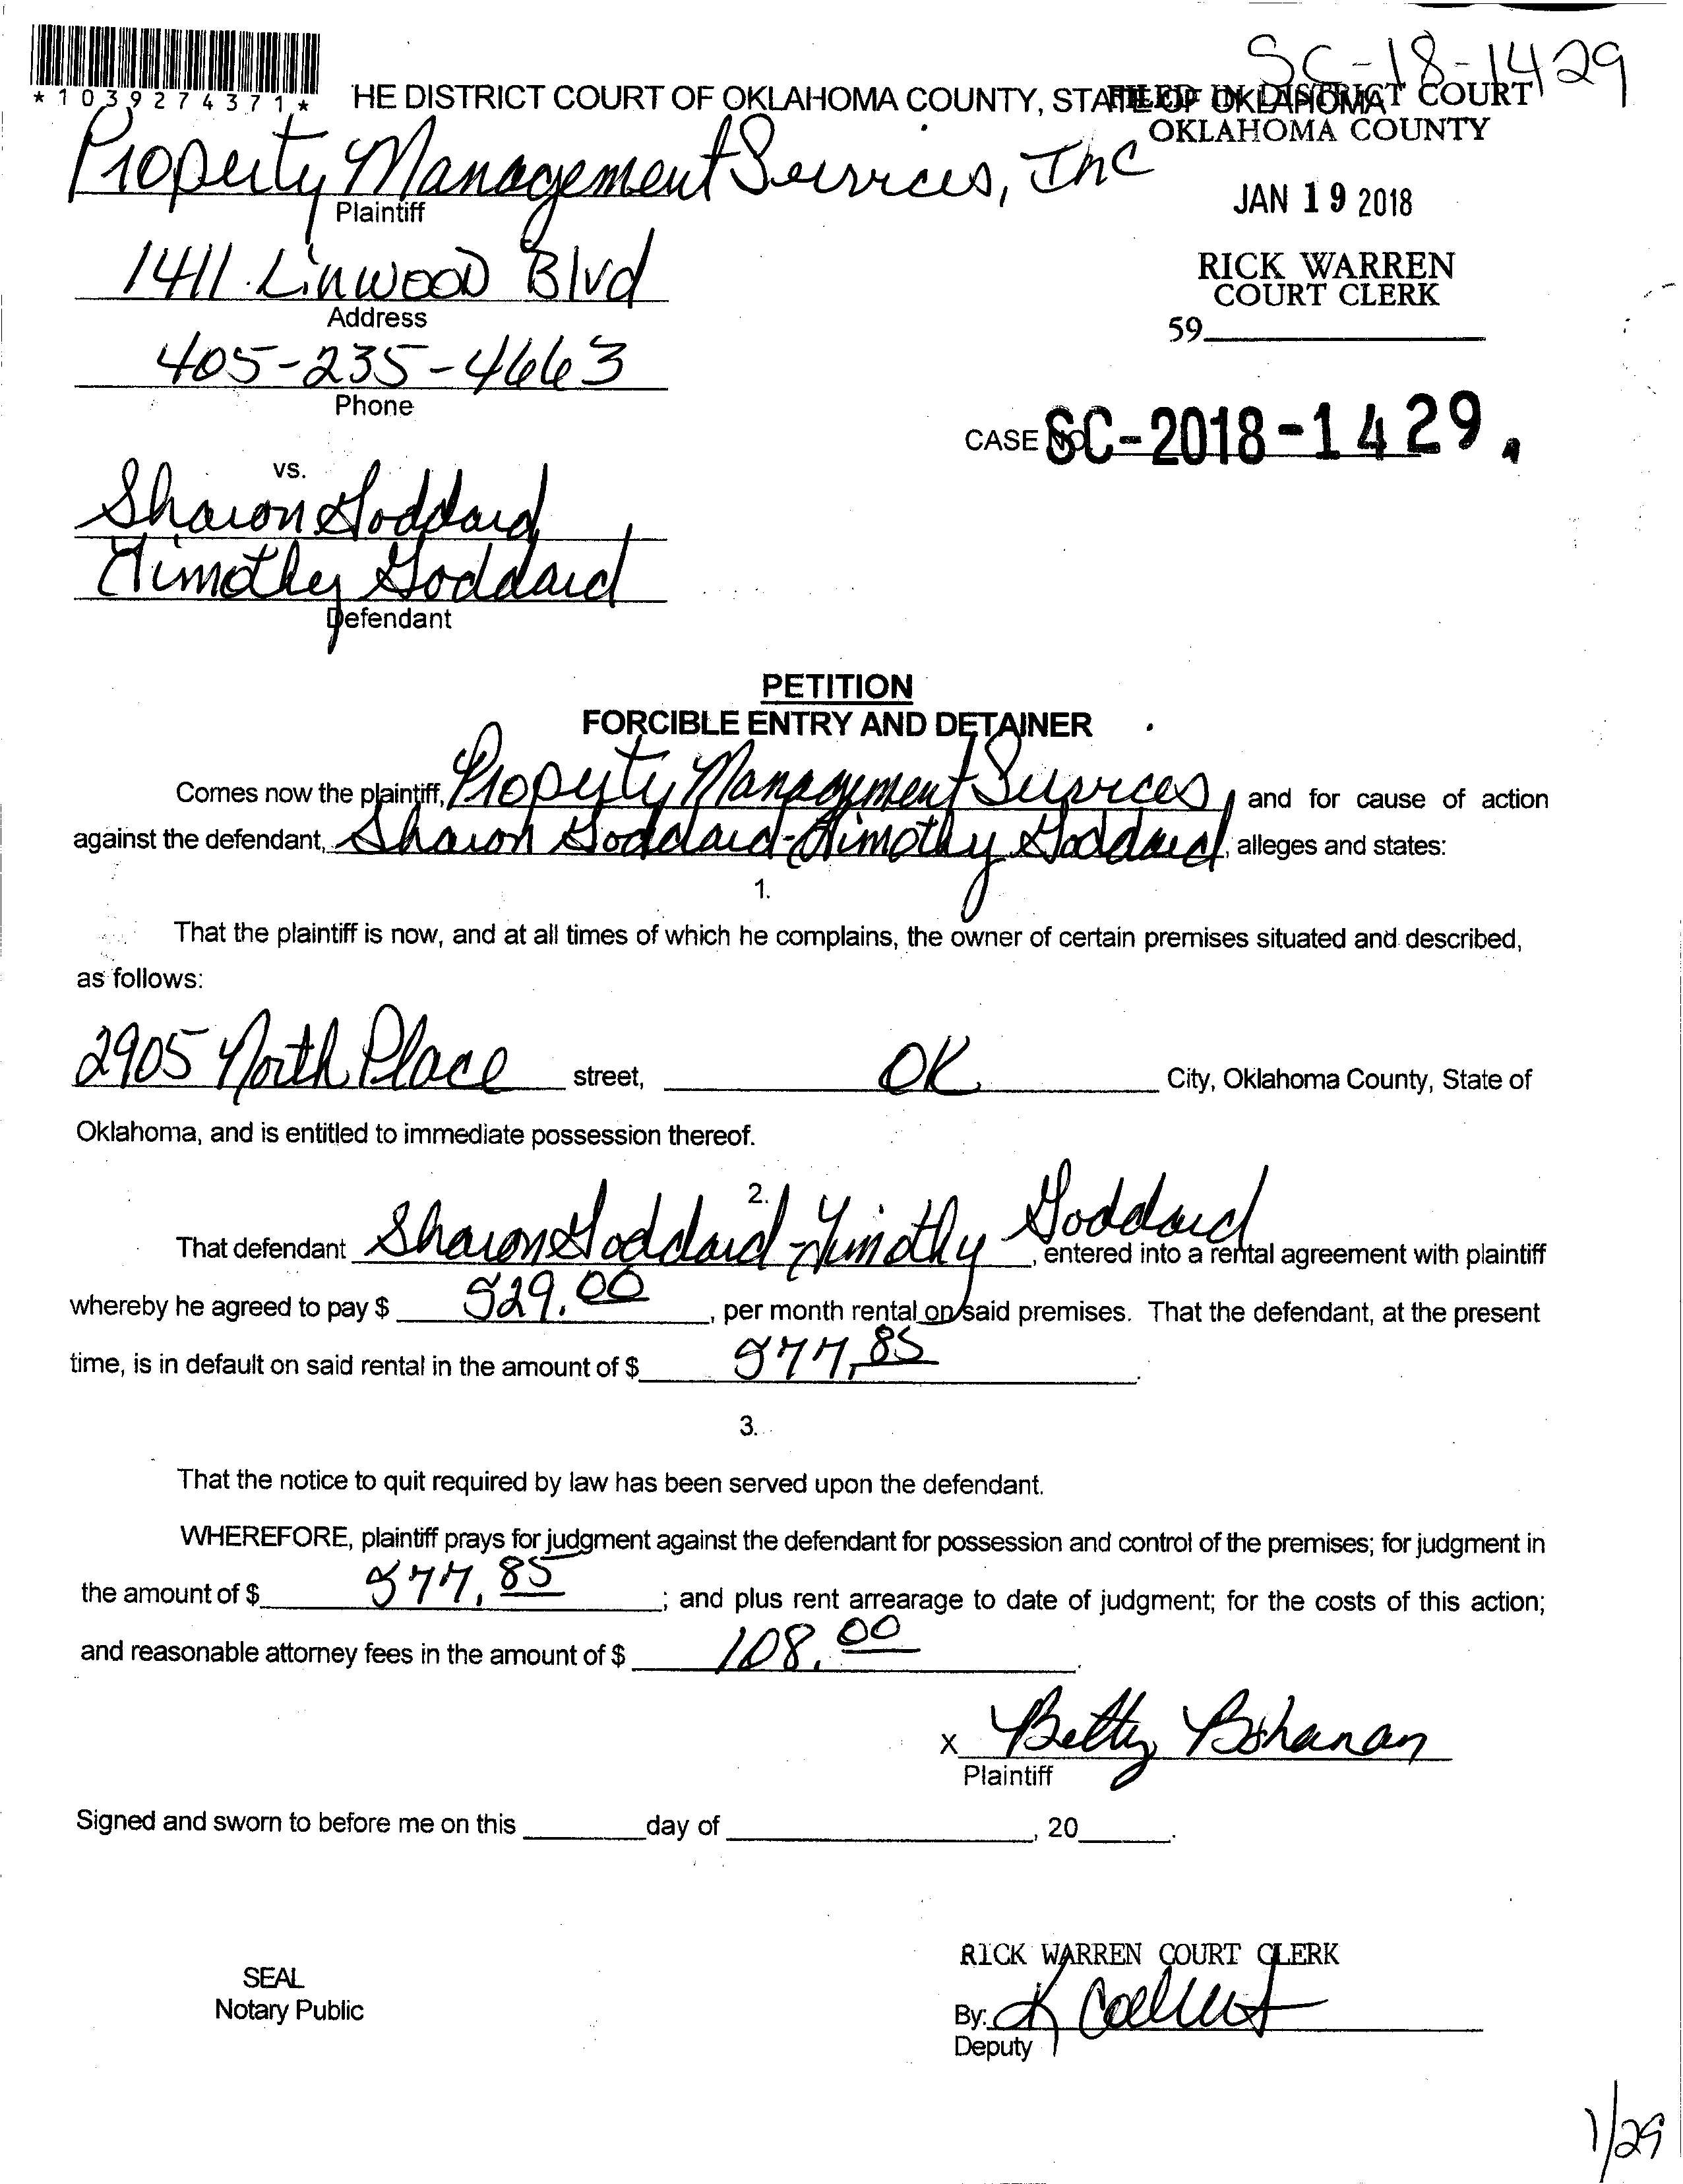 SC-18-1429
*1039274371*
HE DISTRICT COURT OF OKLAHOMA COUNTY, STATE OF OKLAHOMA
FILED IN DISTRICT COURT
OKLAHOMA COUNTY
JAN 19 2018
RICK WARREN
COURT CLERK
59
Property Management Services, Inc
Plaintiff
1411 Linwood Blvd
Address
405-235-4663
Phone
CASE NO. SC-2018-1429
vs.
Sharon Goddard
Timothy Goddard
Defendant
PETITION
FORCIBLE ENTRY AND DETAINER
Comes now the plaintiff, Property Management Services, and for cause of action
against the defendant, Sharon Goddard-Timothy Goddard, alleges and states:
1.
That the plaintiff is now, and at all times of which he complains, the owner of certain premises situated and described,
as follows:
2905 North Place street, OK City, Oklahoma County, State of
Oklahoma, and is entitled to immediate possession thereof.
2.
That defendant Sharon Goddard-Timothy Goddard, entered into a rental agreement with plaintiff
whereby he agreed to pay $ 529.00, per month rental on said premises. That the defendant, at the present
time, is in default on said rental in the amount of $ 577.85.
3.
That the notice to quit required by law has been served upon the defendant.
WHEREFORE, plaintiff prays for judgment against the defendant for possession and control of the premises; for judgment in
the amount of $ 577.85; and plus rent arrearage to date of judgment; for the costs of this action;
and reasonable attorney fees in the amount of $ 108.00.
x Betty Bohanan
Plaintiff
Signed and sworn to before me on this day of , 20 .
SEAL
Notary Public
RICK WARREN COURT CLERK
By: K
Deputy
1/29